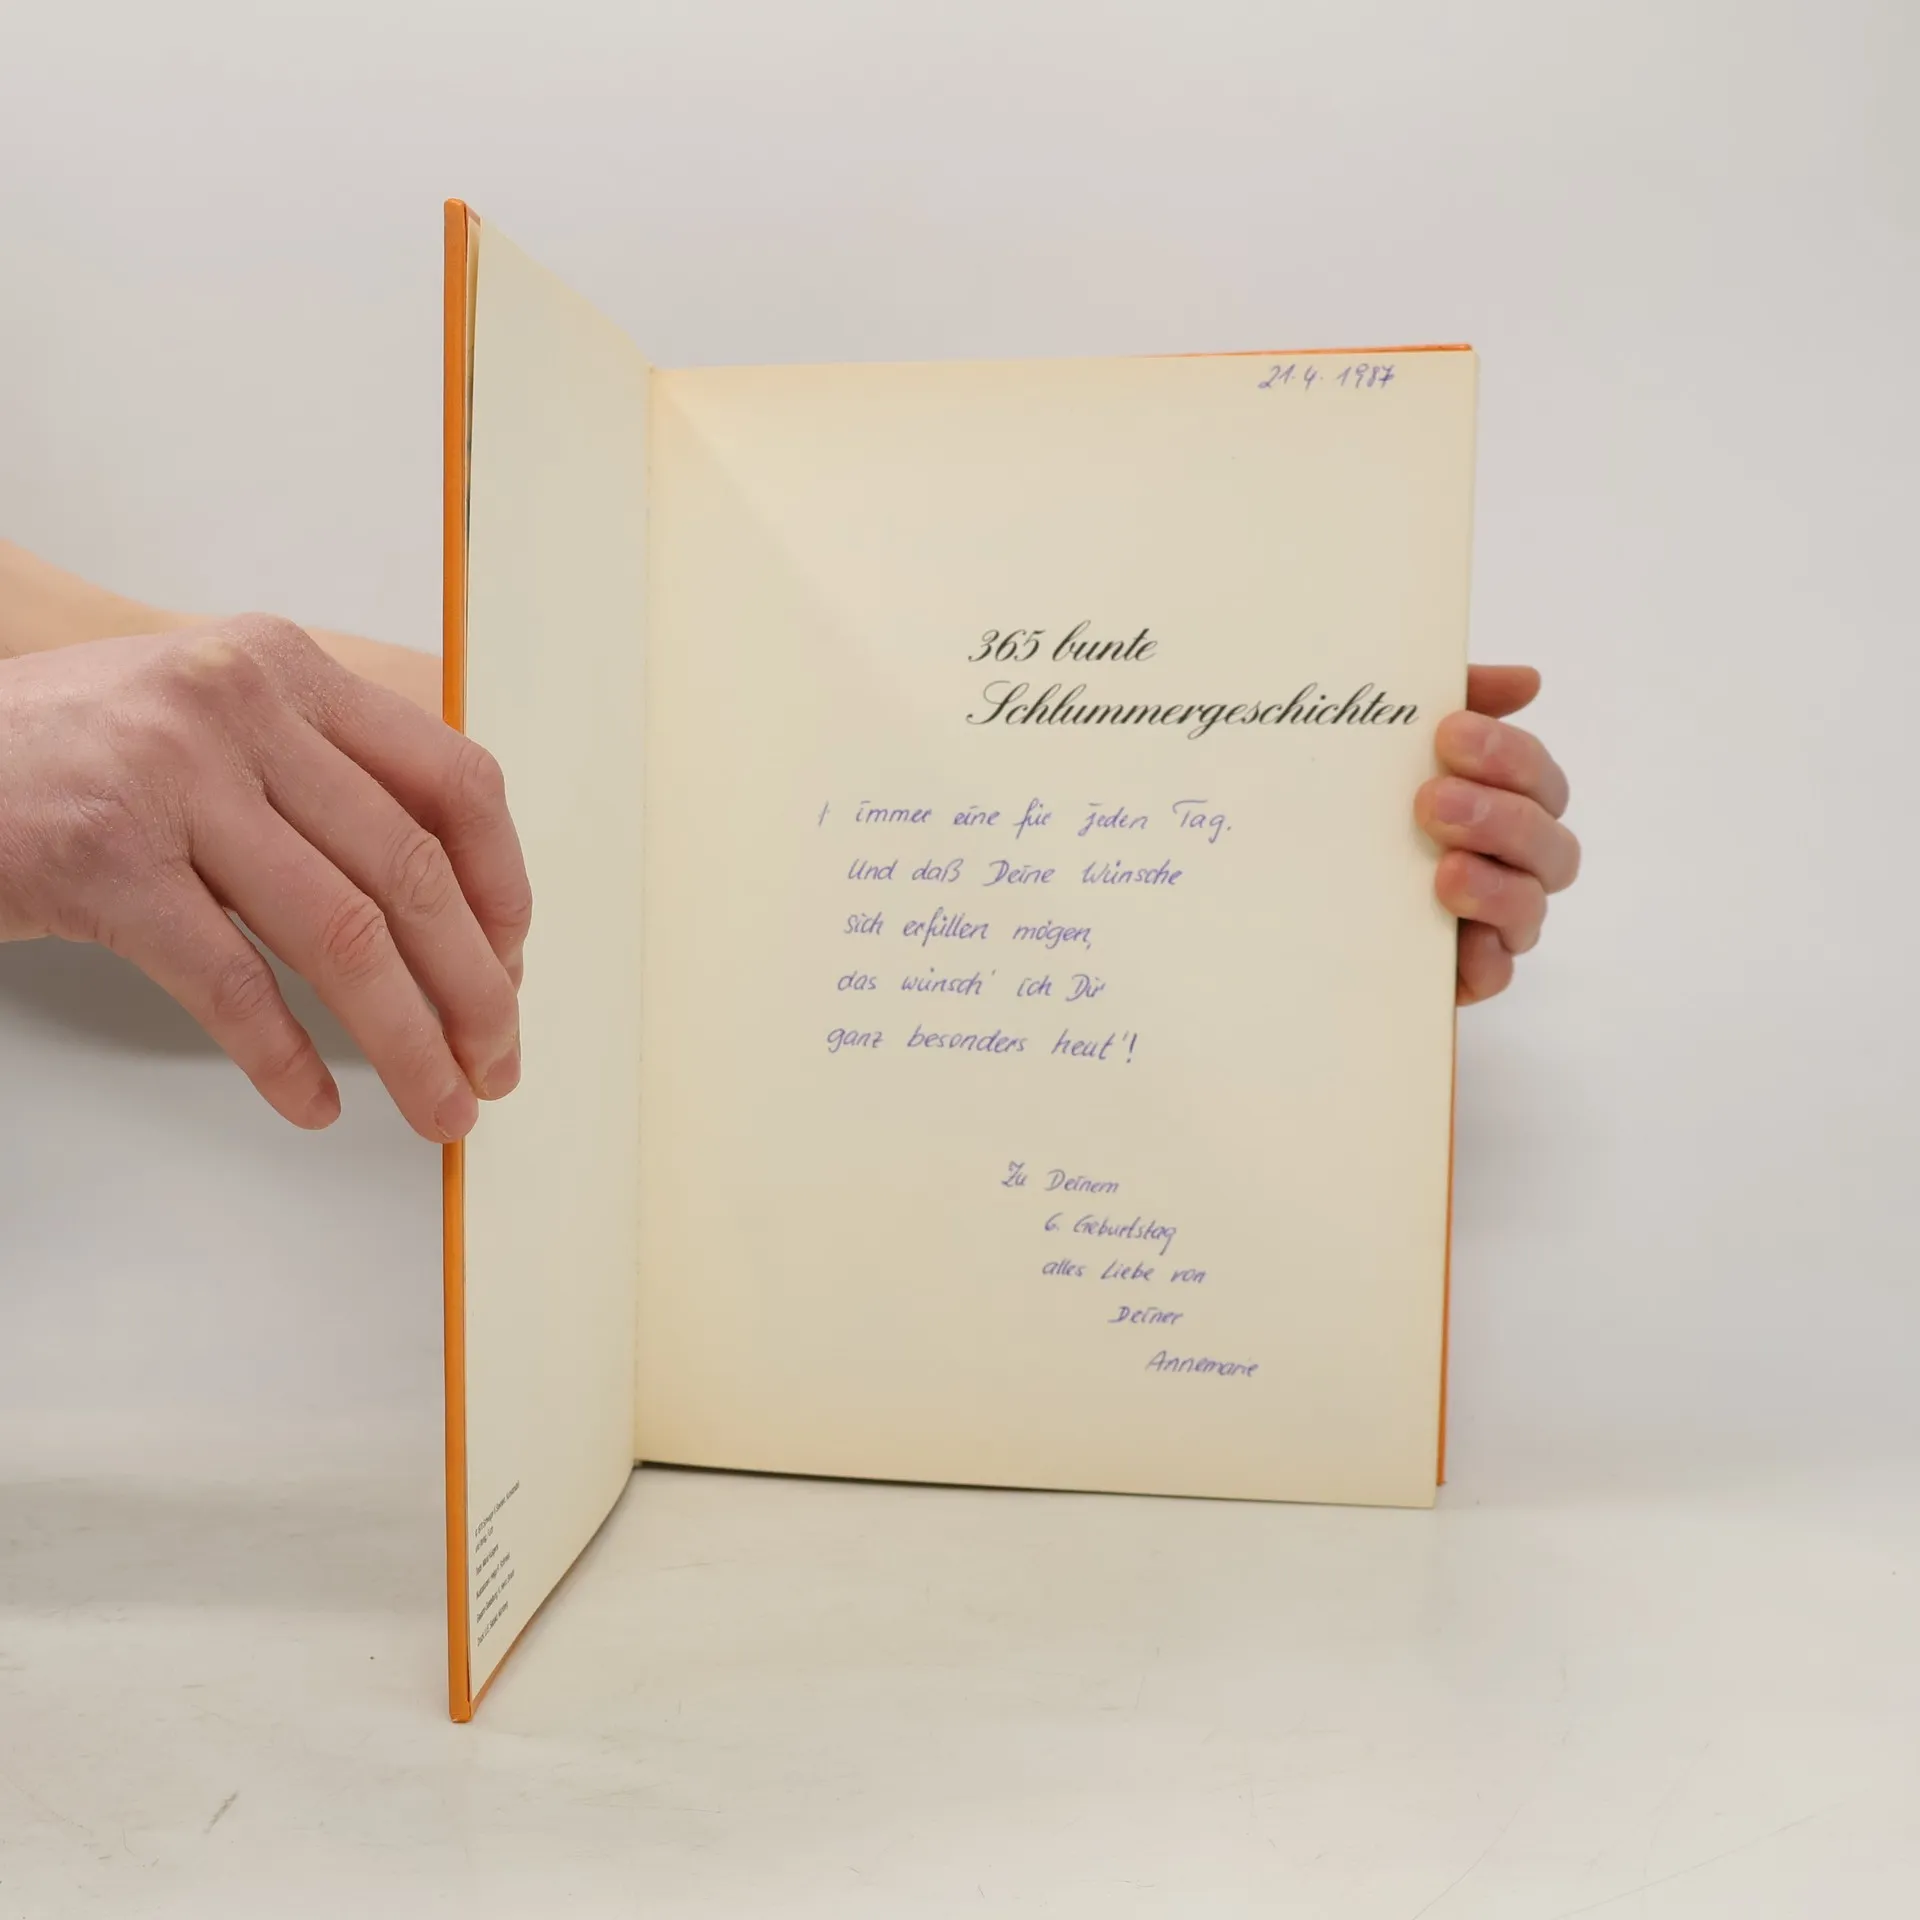 21.4.1987
365 bunte
Schlummergeschichten
immer eine für jeden Tag.
Und daß Deine Wünsche
sich erfüllen mögen,
das wünsch' ich Dir
ganz besonders heut'!
Zu Deinem
6. Geburtstag
alles Liebe von
Deiner
Annemarie